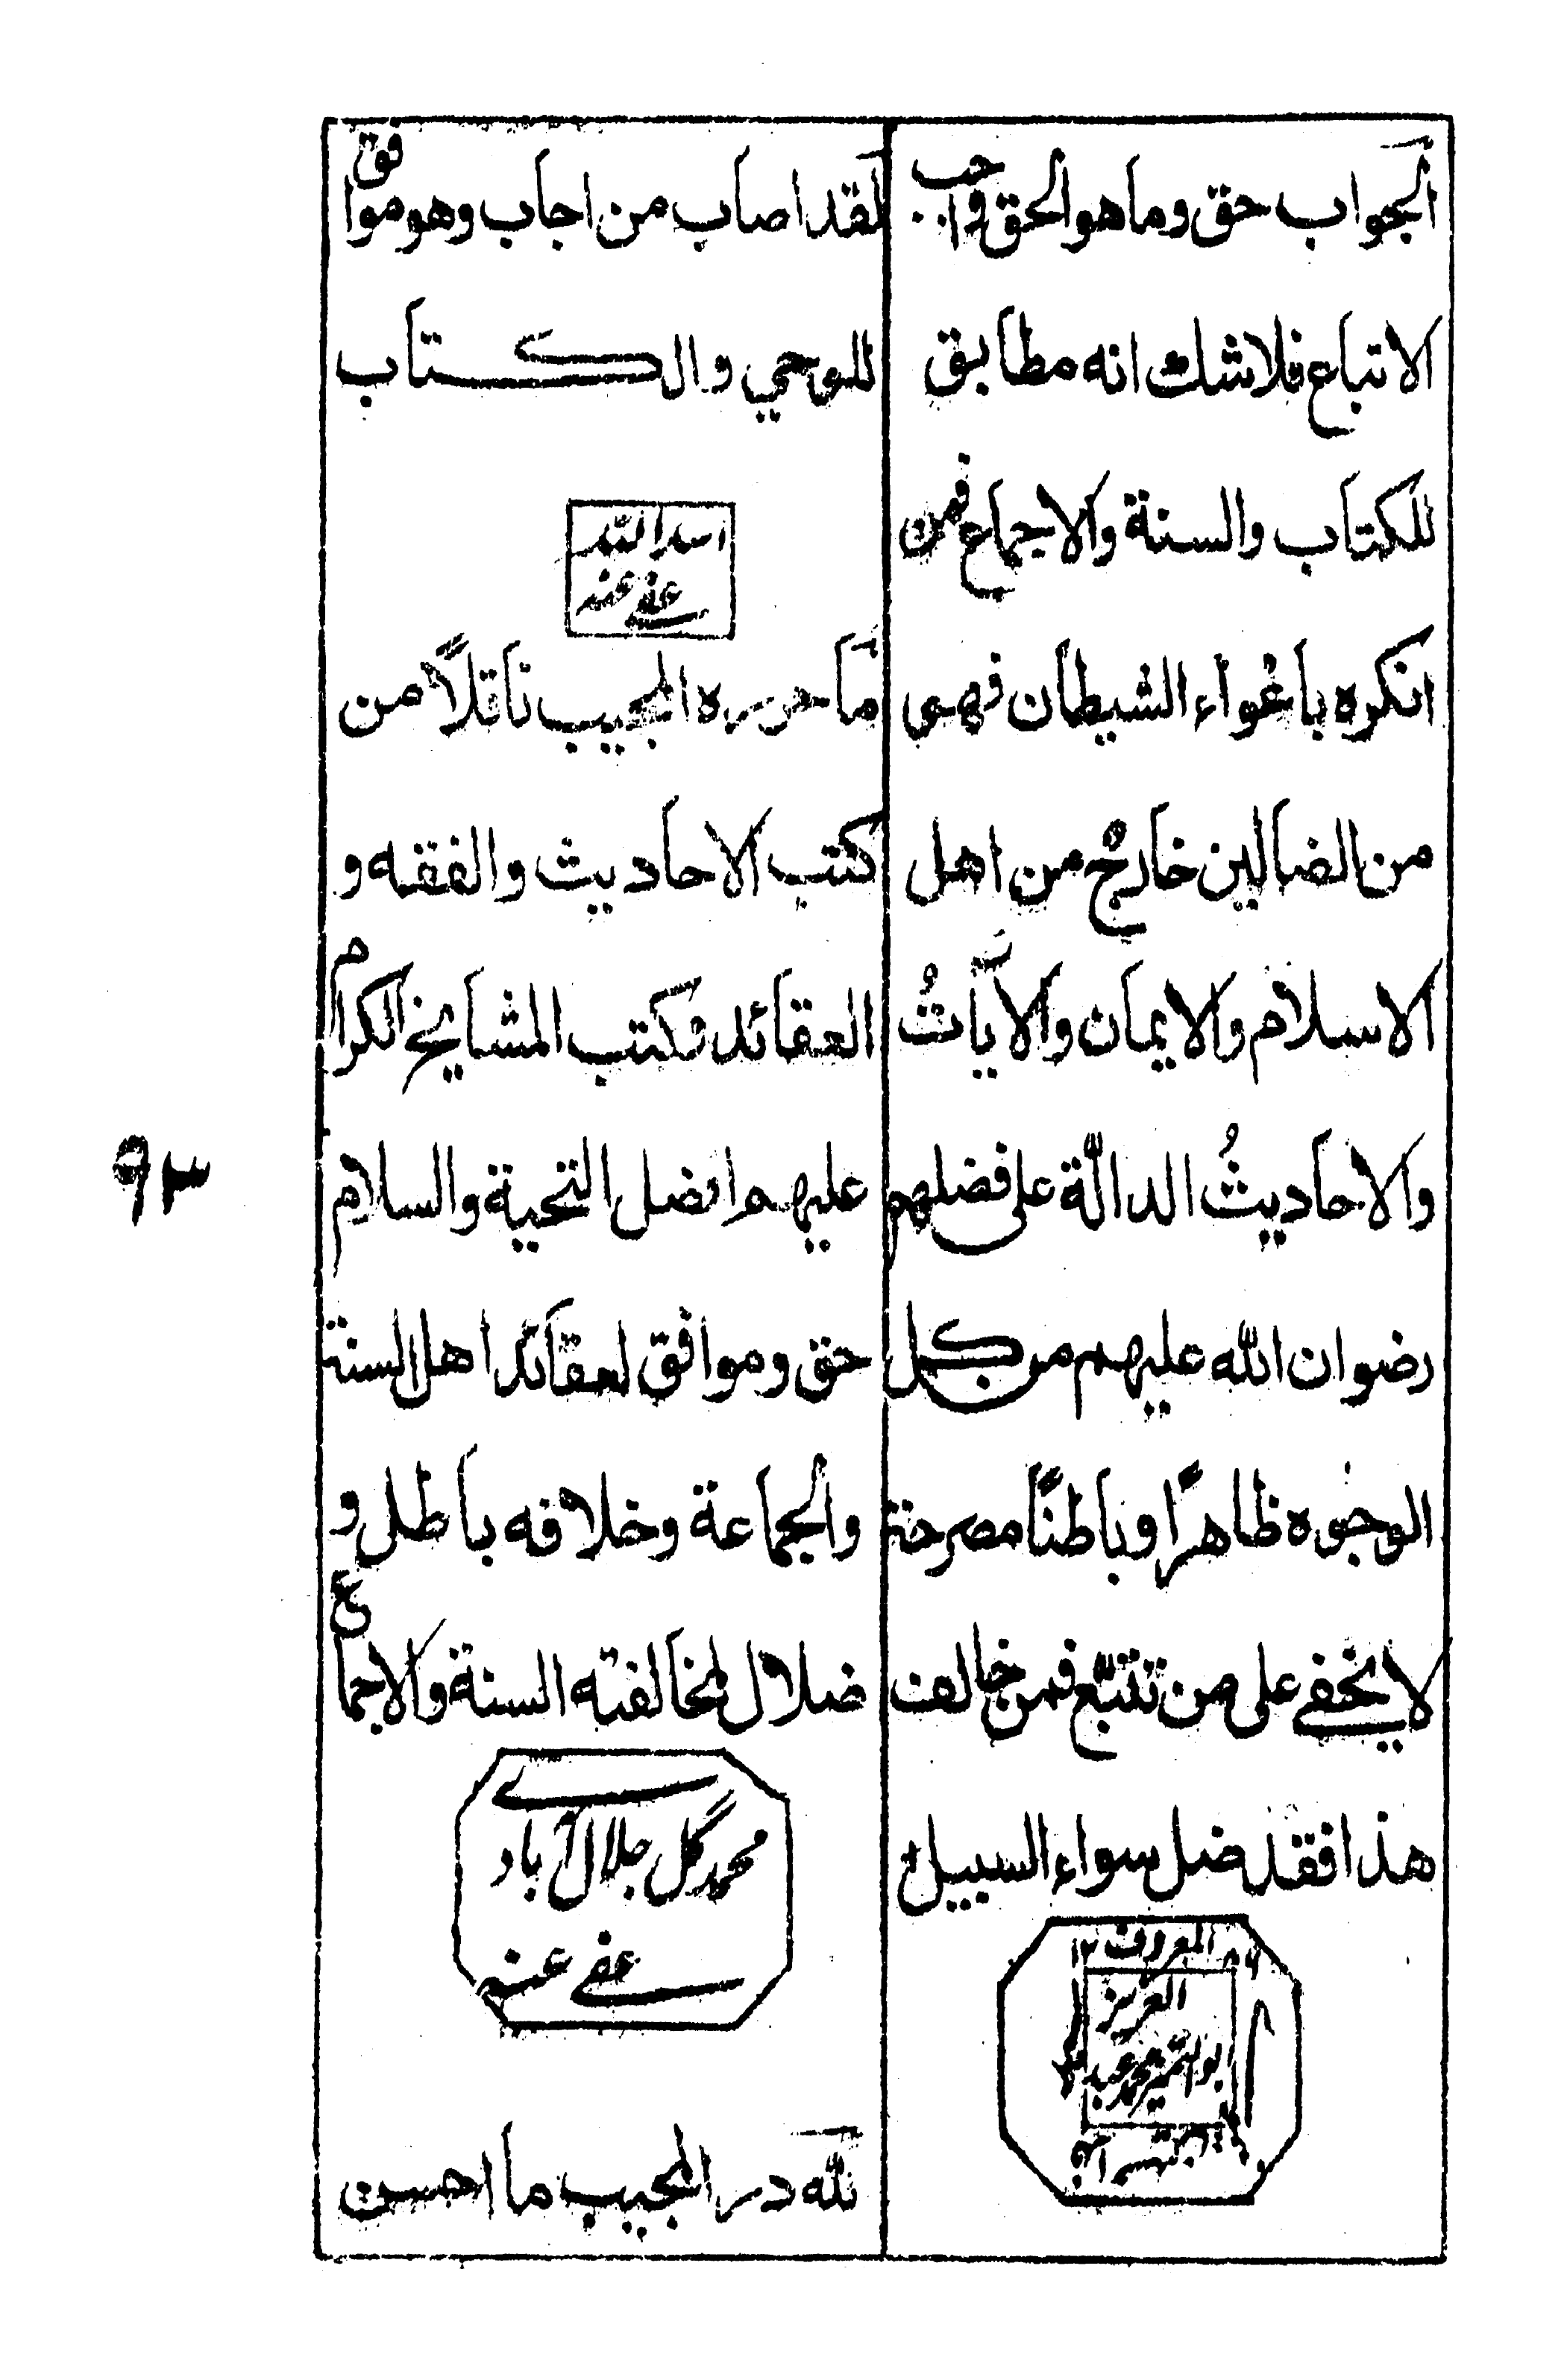 الجواب حق وما هو الحق فواجب
الاتباع فلا شك انه مطابق
للكتاب والسنة والاجماع فمن
انكره باغواء الشيطان فهى
من الضالين خارجٌ من اهل
الاسلام والايمان والاٰياتُ
والاحاديثُ الدالّة على فضلهم
رضوان الله عليهم من كل
الوجوه ظاهرًا وباطنًا مصرحة
لا يخفى على من تتبّع فمن خالف
هذا فقد ضل سواء السبيل
المعروف
العزيز
محمد عبد
لقد اصاب من اجاب وهو موافق
للوحي والكتاب
اسد الله
عفى عنه
ما حرره المجيب ناقلاً من
كتب الاحاديث والفقه و
العقائد وكتب المشايخ الكرام
عليهم افضل التحية والسلام
حق وموافق لعقائد اهل السنة
والجماعة وخلافه باطل و
ضلال لمخالفته السنة والاجماع
محمد گل جلال آبادے
عفى عنہ
لله در المجيب ما احسن
٩٣